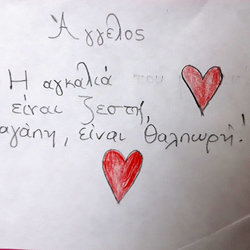 Άγγελος
Η αγκαλιά του
είναι ζεστή,
αγάπη, είναι θαλπωρή!